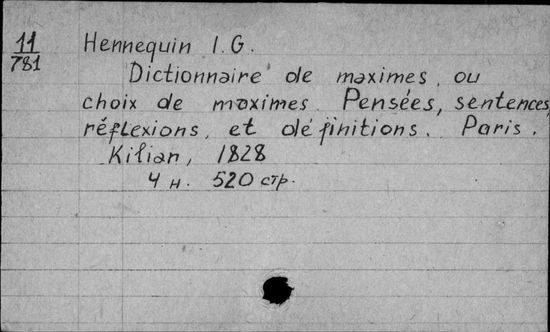 11
781
Hennequin I.G.
Dictionnaire de maximes, ou
choix de maximes. Pensées, sentences,
réflexions, et définitions. Paris.
Kilian, 1828
4 н. 520 стр.